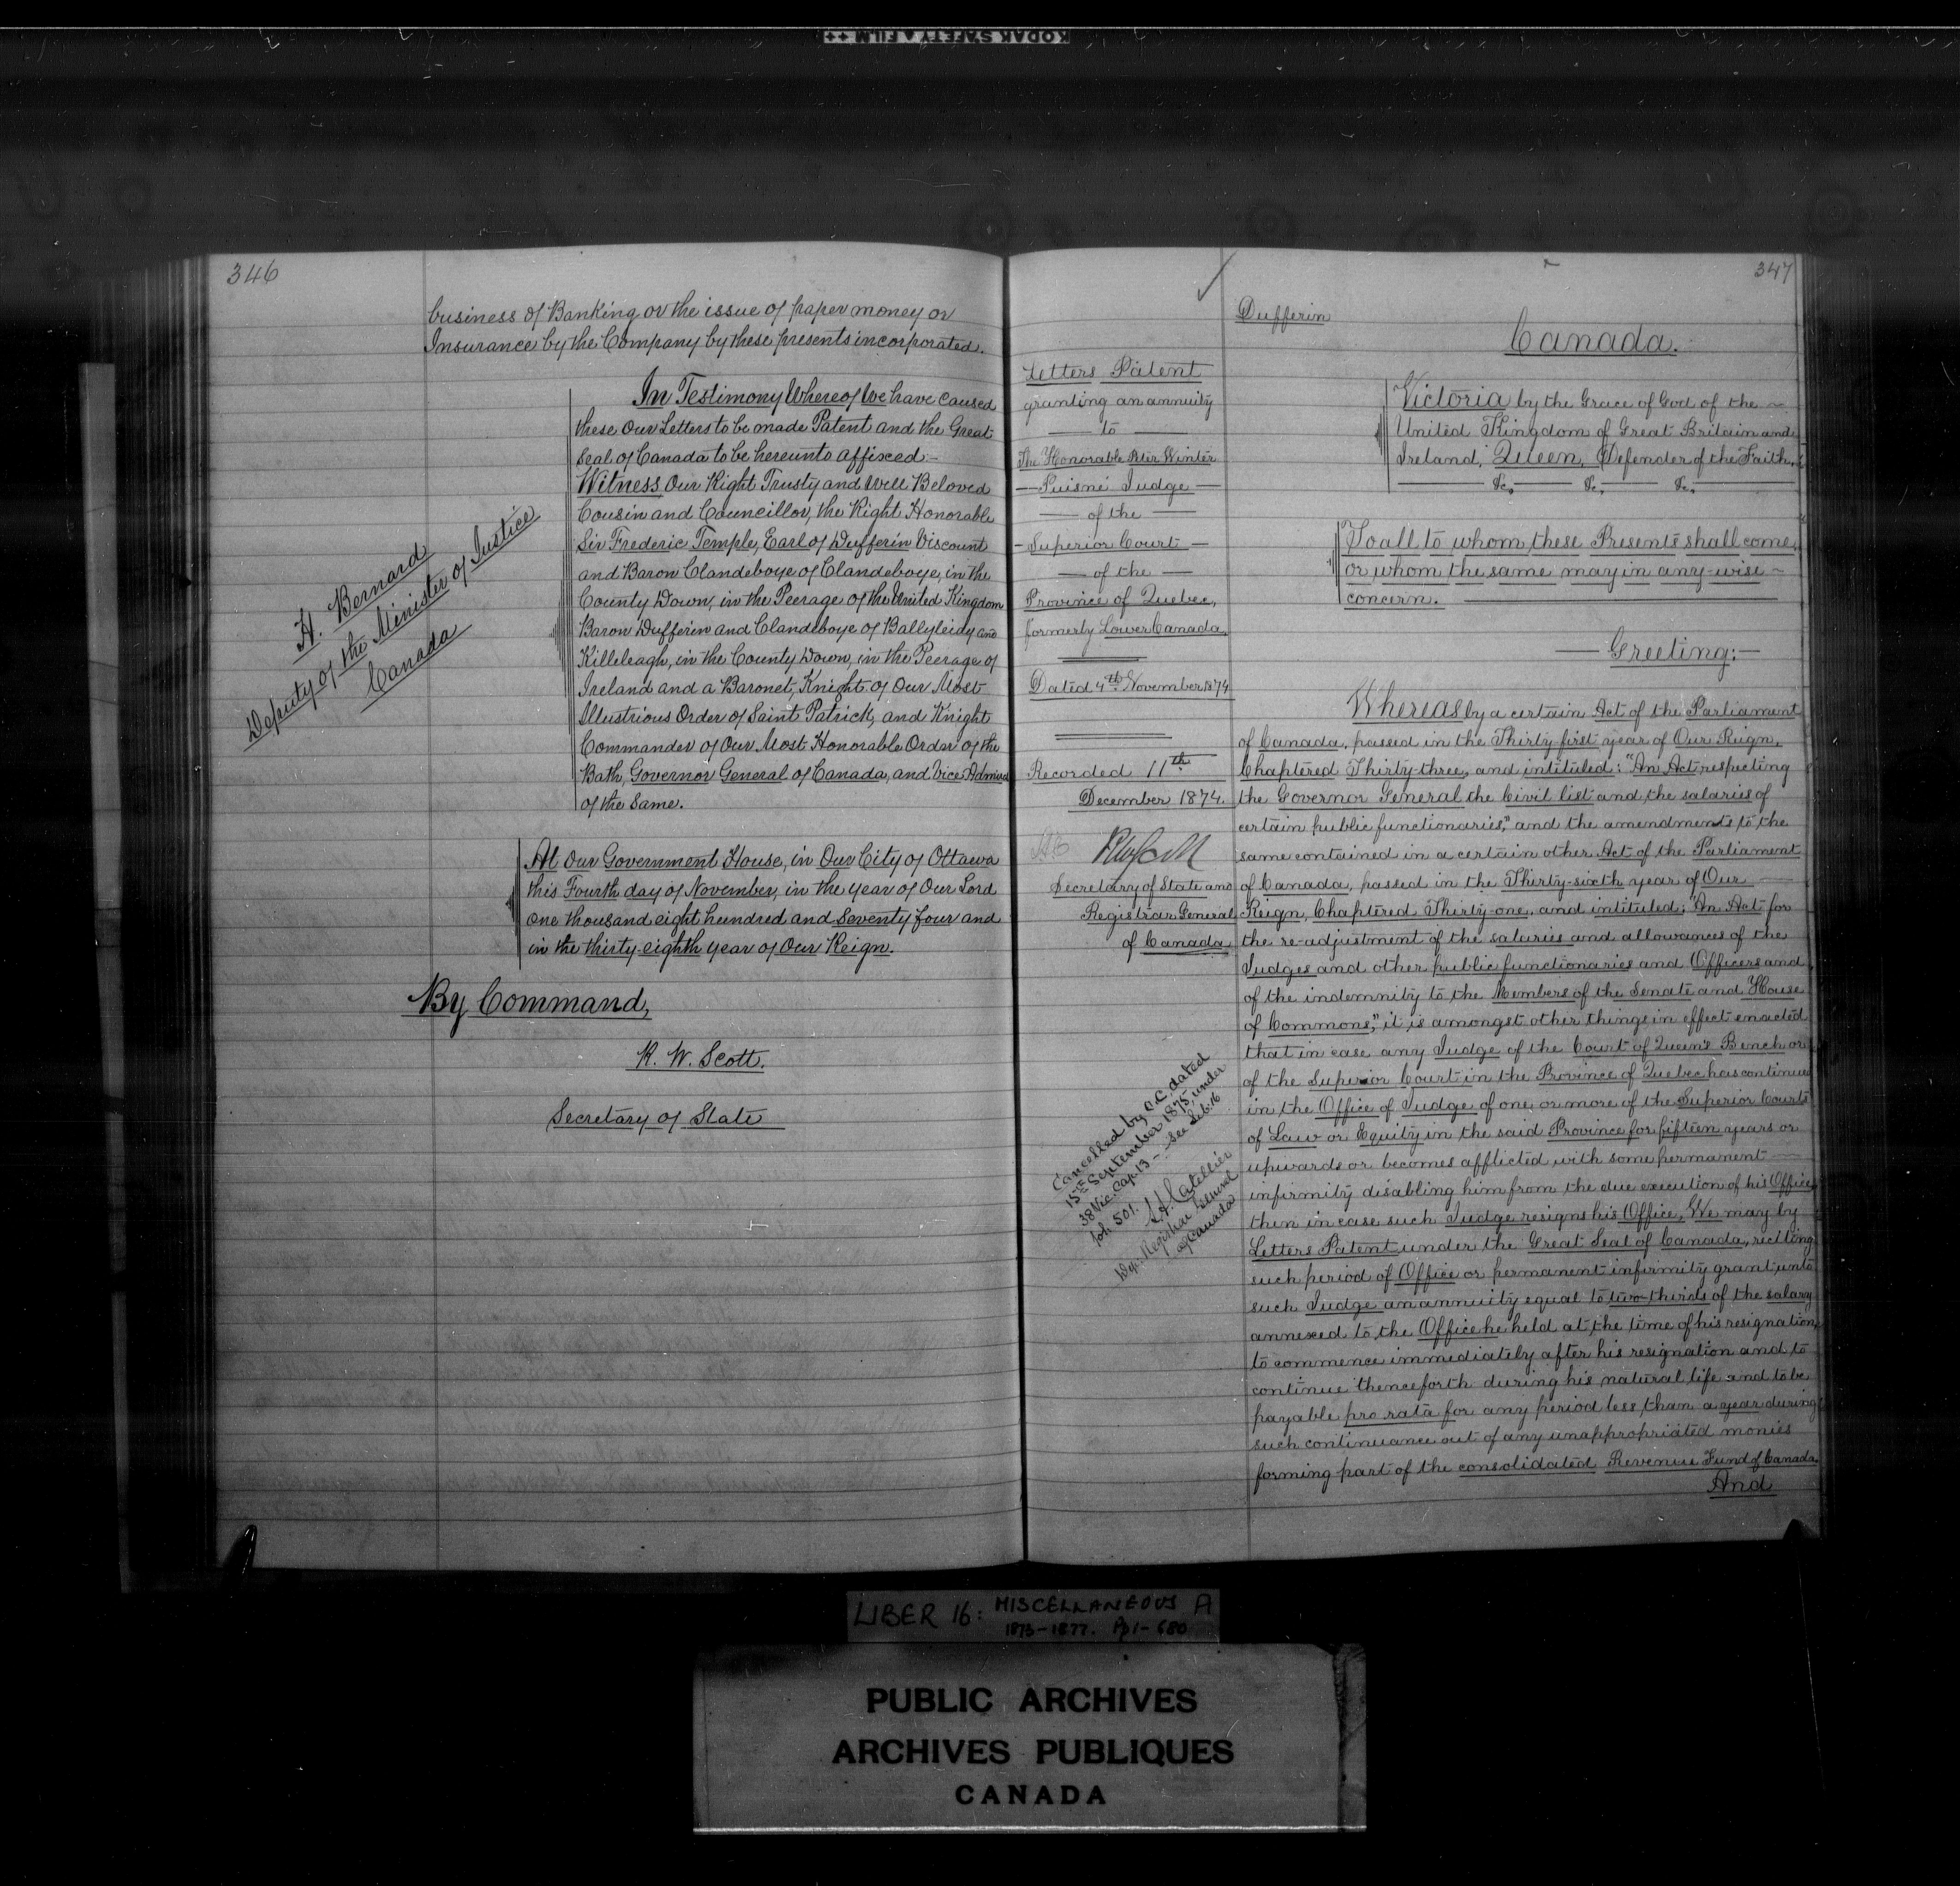 KODAK SAFETY A FILM ++
346
business of Banking or the issue of paper money or
Insurance by the Company by these presents incorporated.
In Testimony Whereof We have caused
these Our Letters to be made Patent and the Great
Seal of Canada to be hereunto affixed:-
Witness Our Right Trusty and Well Beloved
Cousin and Councillor, the Right Honorable
Sir Frederic Temple, Earl of Dufferin Viscount
and Baron Clandeboye of Clandeboye, in the
County Down, in the Peerage of the United Kingdom
Baron Dufferin and Clandeboye of Ballyleidy and
Killeleagh, in the County Down, in the Peerage of
Ireland and a Baronet, Knight of Our Most
Illustrious Order of Saint Patrick, and Knight
Commander of Our Most Honorable Order of the
Bath, Governor General of Canada, and Vice Admiral
of the same.
H. Bernard
Deputy of the Minister of Justice
Canada
At Our Government House, in Our City of Ottawa
this Fourth day of November, in the year of Our Lord
One thousand eight hundred and Seventy four and
in the thirty-eighth year of Our Reign.
By Command,
R. W. Scott.
Secretary of State
347
Letters Patent
granting an annuity
to
The Honorable Peter Winter
Puisné Judge
of the
Superior Court
of the
Province of Quebec,
formerly Lower Canada.
Dated 4th November 1874
Recorded 11th
December 1874.
Secretary of State and
Registrar General
of Canada
Cancelled by O.C. dated
15th September 1875, under
38 Vic. Cap. 13 - See Lib. 16
foh. 501.
L. A. Catellier
Dep. Registrar General
of Canada
Dufferin
Canada.
Victoria by the Grace of God of the
United Kingdom of Great Britain and
Ireland, Queen, Defender of the Faith,
&c, &c, &c,
To all to whom these Presents shall come
or whom the same may in any-wise
concern.
Greeting:
Whereas by a certain Act of the Parliament
of Canada, passed in the Thirty first year of Our Reign,
Chaptered Thirty-three, and intituled: "An Act respecting
the Governor General the Civil list and the salaries of
certain public functionaries," and the amendments to the
same contained in a certain other Act of the Parliament
of Canada, passed in the Thirty-sixth year of Our
Reign, Chaptered Thirty-one, and intituled; "An Act for
the re-adjustment of the salaries and allowances of the
Judges and other public functionaries and Officers and
of the indemnity to the Members of the Senate and House
of Commons," it is amongst other things in effect enacted
that in case any Judge of the Court of Queen's Bench or
of the Superior Court in the Province of Quebec has continued
in the Office of Judge of one or more of the Superior Courts
of Law or Equity in the said Province for fifteen years or
upwards or becomes afflicted with some permanent
infirmity disabling him from the due execution of his Office
then in case such Judge resigns his Office, We may by
Letters Patent under the Great Seal of Canada, reciting
such period of Office or permanent infirmity grant unto
such Judge an annuity equal to two-thirds of the salary
annexed to the Office he held at the time of his resignation
to commence immediately after his resignation and to
continue thenceforth during his natural life and to be
payable pro rata for any period less than a year during
such continuance out of any unappropriated monies
forming part of the consolidated Revenue Fund of Canada
And
LIBER 16: MISCELLANEOUS A
1873-1877. Pp 1-680
PUBLIC ARCHIVES
ARCHIVES PUBLIQUES
CANADA